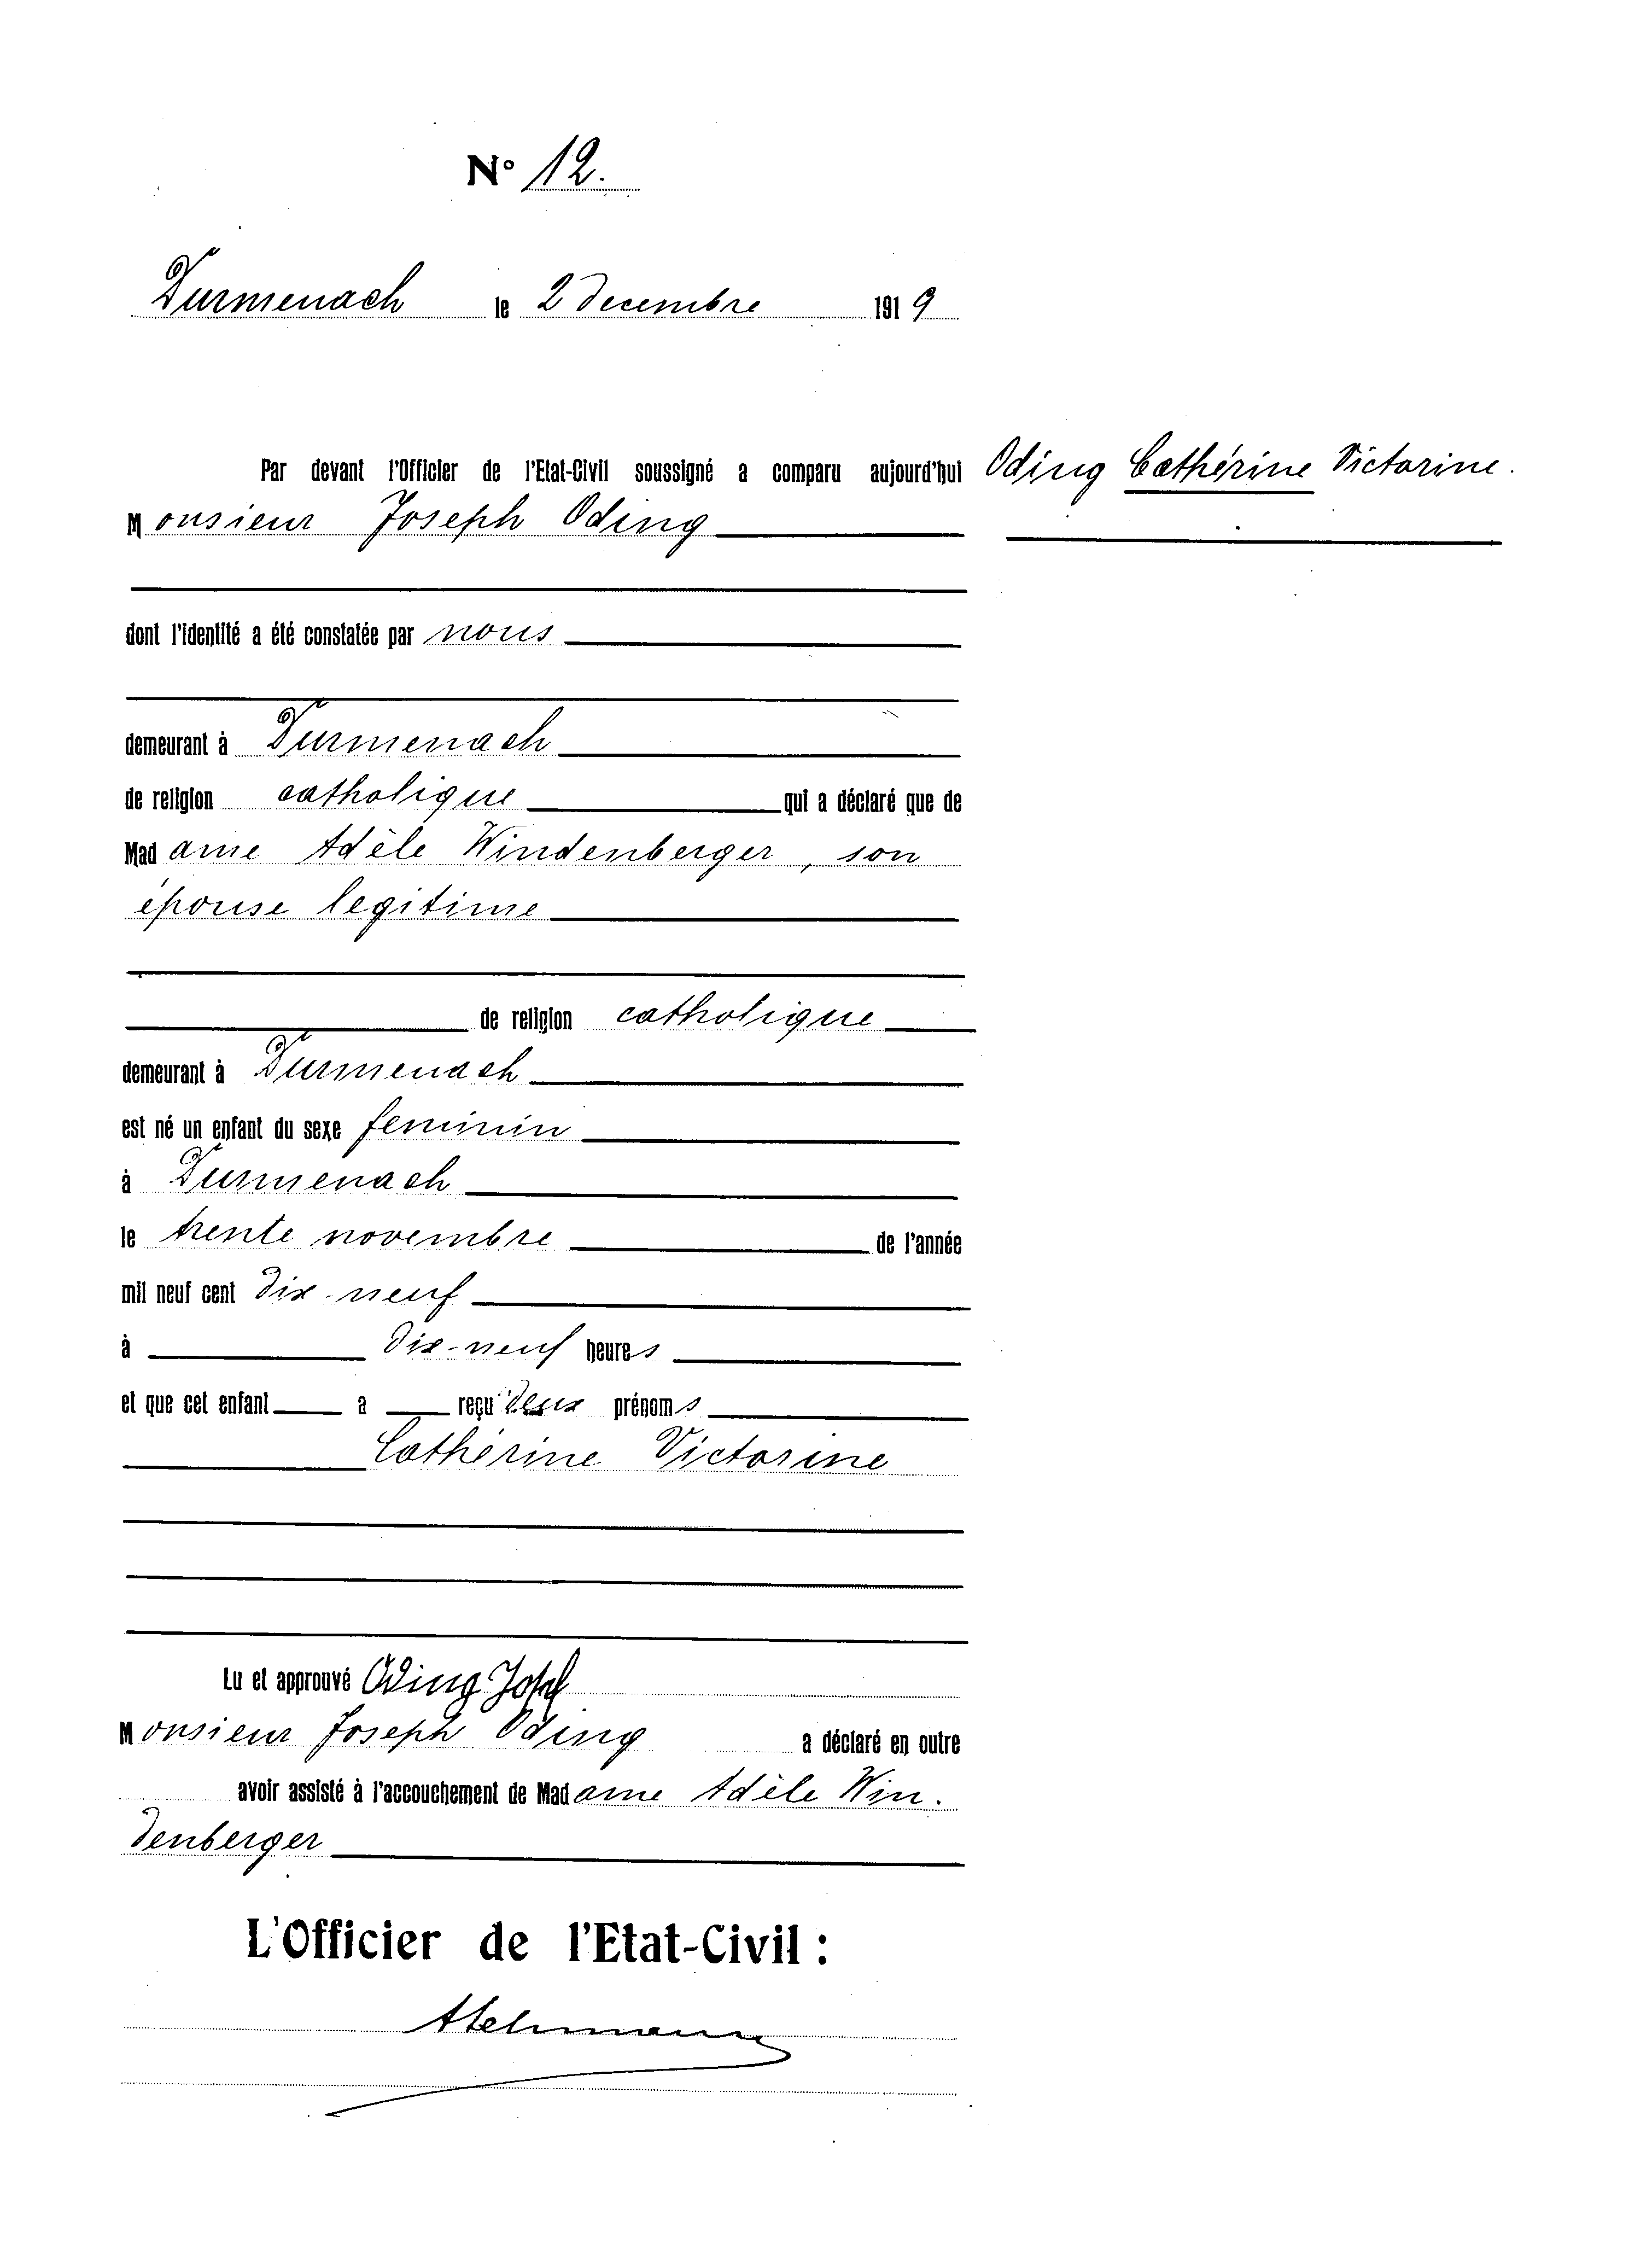 N° 12.
Durmenach le 2 decembre 1919
Par devant l'Officier de l'Etat-Civil soussigné a comparu aujourd'hui
Oding Cathérine Victorine.
Monsieur Joseph Oding
dont l'identité a été constatée par nous
demeurant à Durmenach
de religion catholique qui a déclaré que de
Madame Adèle Windenberger, son
épouse legitime
de religion catholique
demeurant à Durmenach
est né un enfant du sexe feminin
à Durmenach
le trente novembre de l'année
mil neuf cent dix-neuf
à dix-neuf heures
et que cet enfant a reçu deux prénoms
Cathérine Victorine
Lu et approuvé Oding Josef
Monsieur Joseph Oding a déclaré en outre
avoir assisté à l'accouchement de Madame Adèle Win-
denberger
L'Officier de l'Etat-Civil :